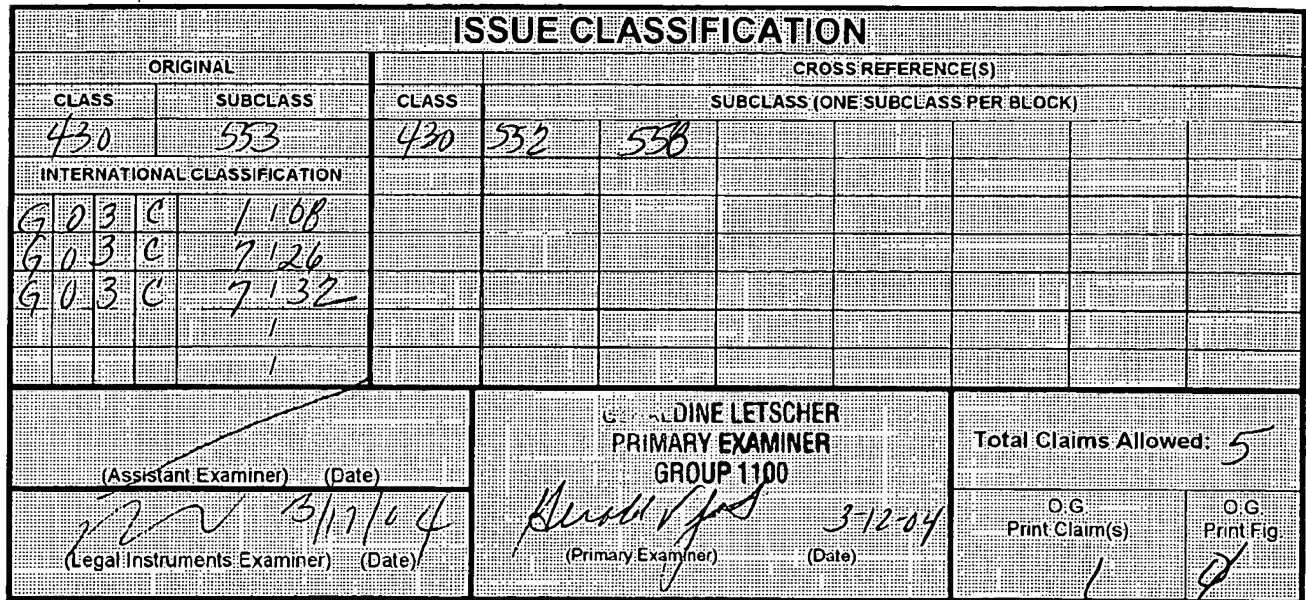 ISSUE CLASSIFICATION
ORIGINAL CROSS REFERENCE(S)
CLASS SUBCLASS CLASS SUBCLASS (ONE SUBCLASS PER BLOCK)
430 553 430 552 558
INTERNATIONAL CLASSIFICATION
G 0 3 C 1 / 08
G 0 3 C 7 / 26
G 0 3 C 7 / 32
/
/
(Assistant Examiner) (Date)
3/17/04
(Legal Instruments Examiner) (Date)
LDINE LETSCHER
PRIMARY EXAMINER
GROUP 1100
3-12-04
(Primary Examiner) (Date)
Total Claims Allowed: 5
O.G. Print Claim(s)
1
O.G. Print Fig.